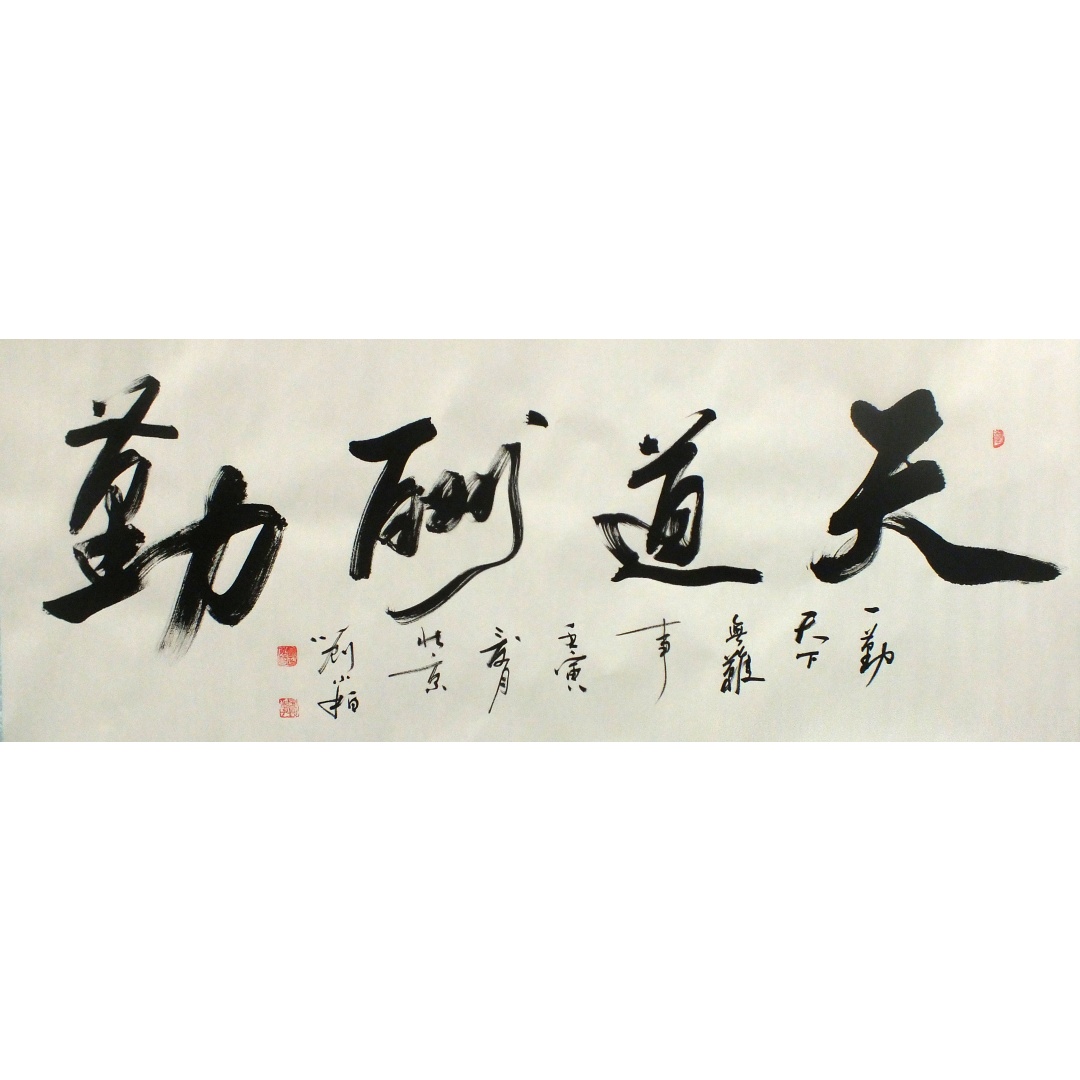 天道酬勤
一勤
天下
無難
事
壬寅
歲月
於京
劉小柏